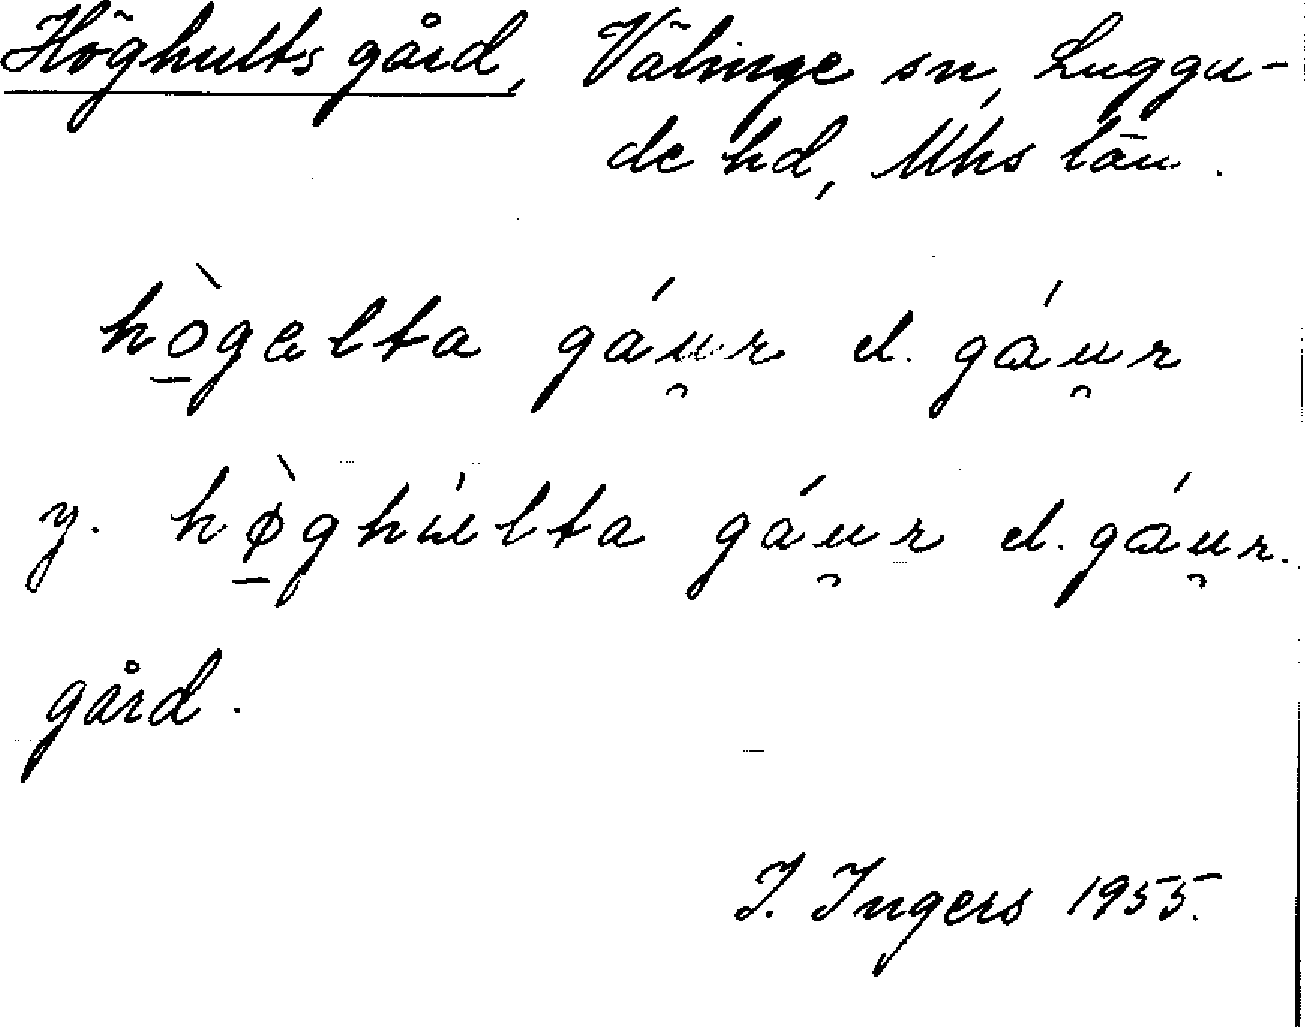 Höghults gård, Välinge sn, Luggu-
de hd, Mhs län.
hò̠gəlta gáu̯r el. gɑ́u̯r
y. hø̠̀ghùlta gáu̯r el. gɑ́u̯r.
gård.
I. Ingers 1955.